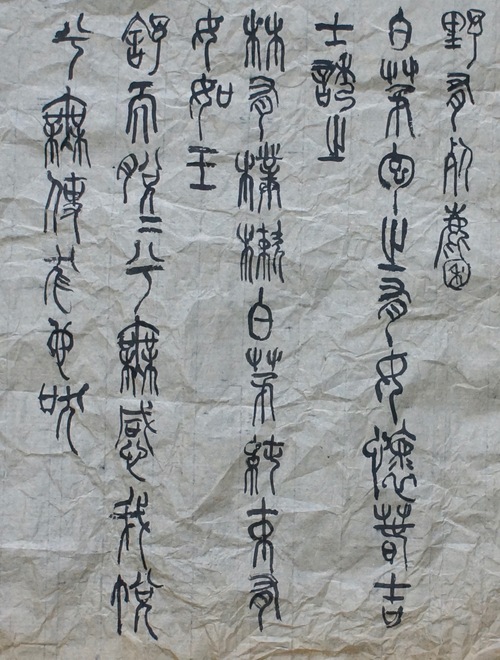 野有死麕
白茅包之有女懷春吉
士誘之
林有樸樕白茅純束有
女如玉
舒而脫〻兮無感我帨
兮無使尨也吠